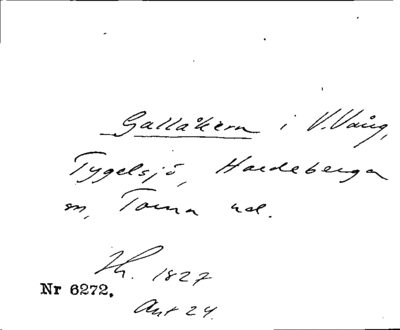 Gallåkern i V.Vång,
Tygelsjö, Hardeberga
sn, Torna hd.
Th. 1827
Nr 6272.
Ant 24.